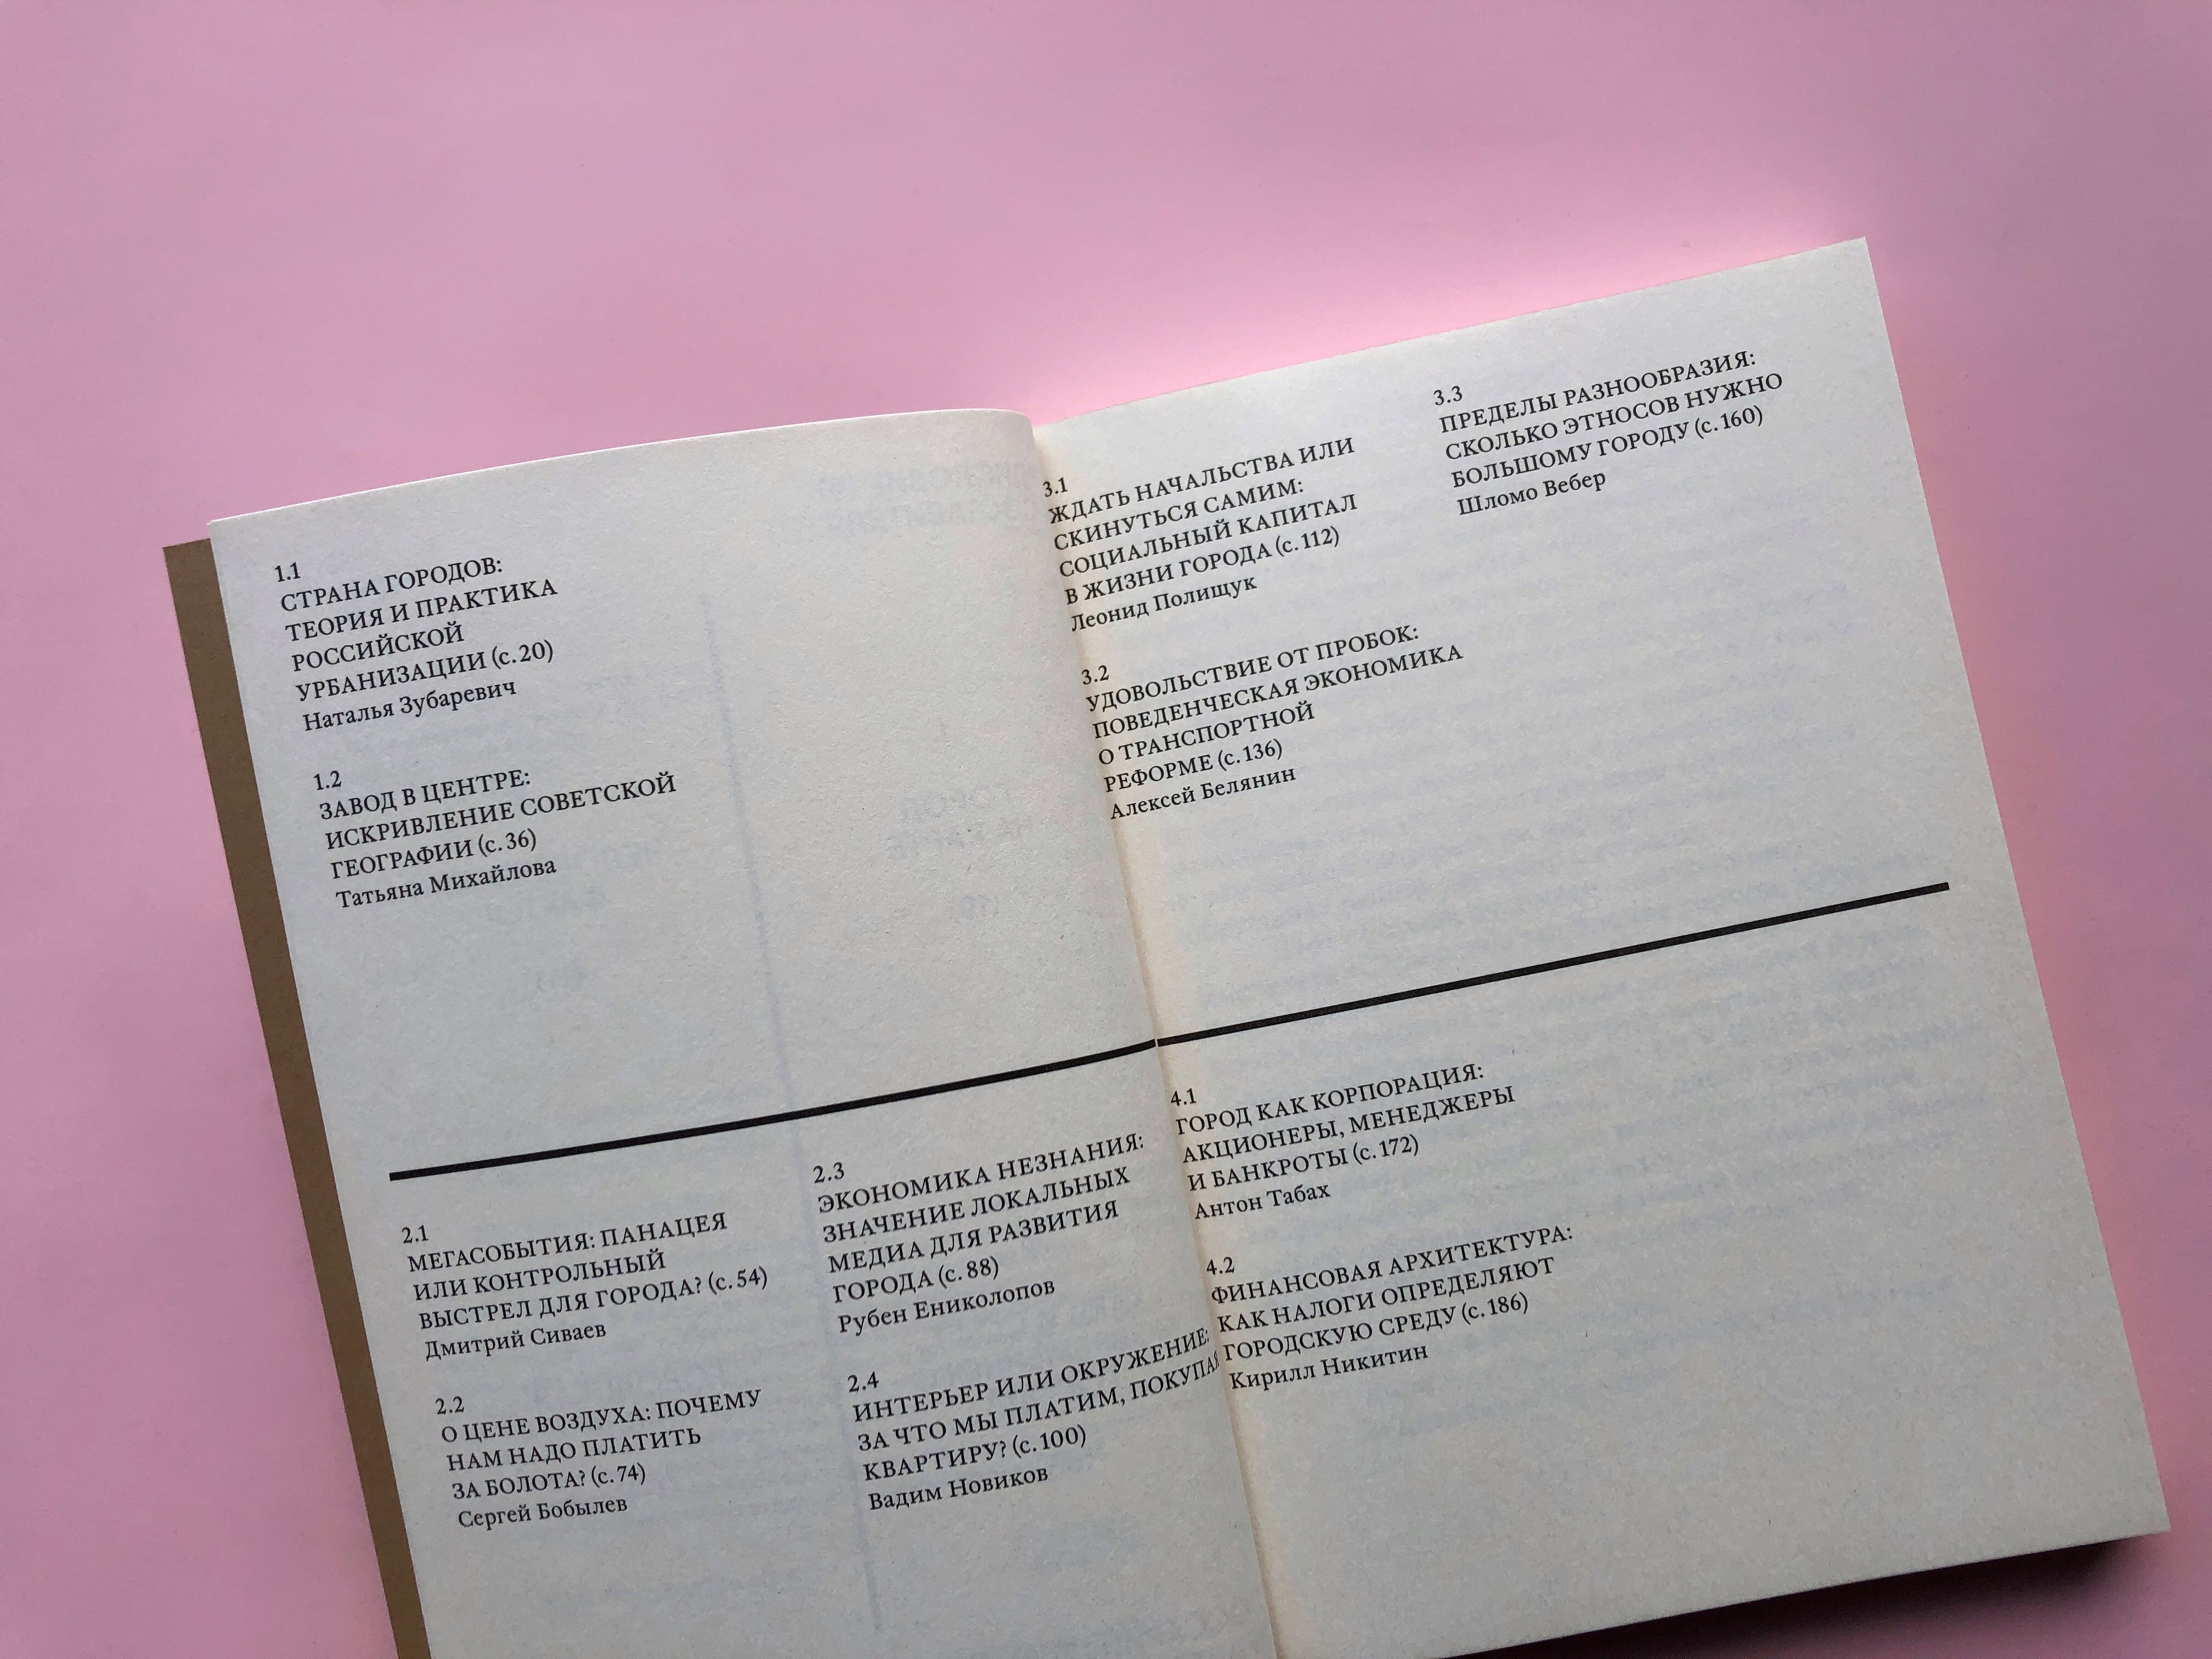 1.1
СТРАНА ГОРОДОВ:
ТЕОРИЯ И ПРАКТИКА
РОССИЙСКОЙ
УРБАНИЗАЦИИ (с. 20)
Наталья Зубаревич
1.2
ЗАВОД В ЦЕНТРЕ:
ИСКРИВЛЕНИЕ СОВЕТСКОЙ
ГЕОГРАФИИ (с. 36)
Татьяна Михайлова
2.1
МЕГАСОБЫТИЯ: ПАНАЦЕЯ
ИЛИ КОНТРОЛЬНЫЙ
ВЫСТРЕЛ ДЛЯ ГОРОДА? (с. 54)
Дмитрий Сиваев
2.2
О ЦЕНЕ ВОЗДУХА: ПОЧЕМУ
НАМ НАДО ПЛАТИТЬ
ЗА БОЛОТА? (с. 74)
Сергей Бобылев
2.3
ЭКОНОМИКА НЕЗНАНИЯ:
ЗНАЧЕНИЕ ЛОКАЛЬНЫХ
МЕДИА ДЛЯ РАЗВИТИЯ
ГОРОДА (с. 88)
Рубен Ениколопов
2.4
ИНТЕРЬЕР ИЛИ ОКРУЖЕНИЕ:
ЗА ЧТО МЫ ПЛАТИМ, ПОКУПАЯ
КВАРТИРУ? (с. 100)
Вадим Новиков
3.1
ЖДАТЬ НАЧАЛЬСТВА ИЛИ
СКИНУТЬСЯ САМИМ:
СОЦИАЛЬНЫЙ КАПИТАЛ
В ЖИЗНИ ГОРОДА (с. 112)
Леонид Полищук
3.2
УДОВОЛЬСТВИЕ ОТ ПРОБОК:
ПОВЕДЕНЧЕСКАЯ ЭКОНОМИКА
О ТРАНСПОРТНОЙ
РЕФОРМЕ (с. 136)
Алексей Белянин
3.3
ПРЕДЕЛЫ РАЗНООБРАЗИЯ:
СКОЛЬКО ЭТНОСОВ НУЖНО
БОЛЬШОМУ ГОРОДУ (с. 160)
Шломо Вебер
4.1
ГОРОД КАК КОРПОРАЦИЯ:
АКЦИОНЕРЫ, МЕНЕДЖЕРЫ
И БАНКРОТЫ (с. 172)
Антон Табах
4.2
ФИНАНСОВАЯ АРХИТЕКТУРА:
КАК НАЛОГИ ОПРЕДЕЛЯЮТ
ГОРОДСКУЮ СРЕДУ (с. 186)
Кирилл Никитин